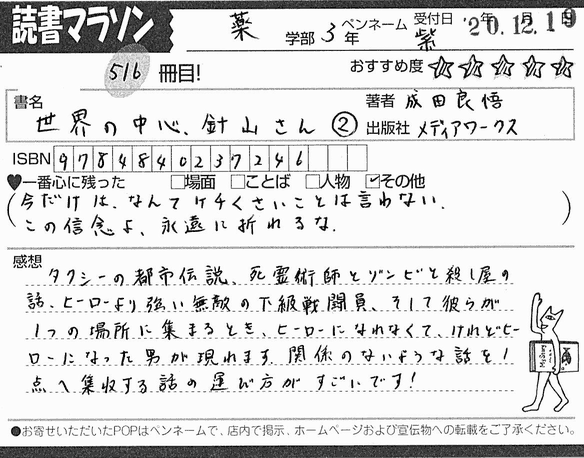 読書マラソン
薬 学部 3年 ペンネーム 紫 受付日 '20年12月19日
516 冊目!
おすすめ度 ☆☆☆☆☆
書名 世界の中心、針山さん ②
著者 成田良悟
出版社 メディアワークス
ISBN 9784840237246
♥一番心に残った □場面 □ことば □人物 ☑その他
(今だけは、なんてケチくさいことは言わない.
この信念よ、永遠に折れるな.)
感想
タクシーの都市伝説、死霊術師とゾンビと殺し屋の
話、ヒーローより強い無敵の下級戦闘員、そして彼らが
1つの場所に集まるとき、ヒーローになれなくて、けれどヒー
ローになった男が現れます. 関係のないような話を1
点へ集収する話の運び方がすごいです!
●お寄せいただいたPOPはペンネームで、店内で掲示、ホームページおよび宣伝物への転載をご了承ください。